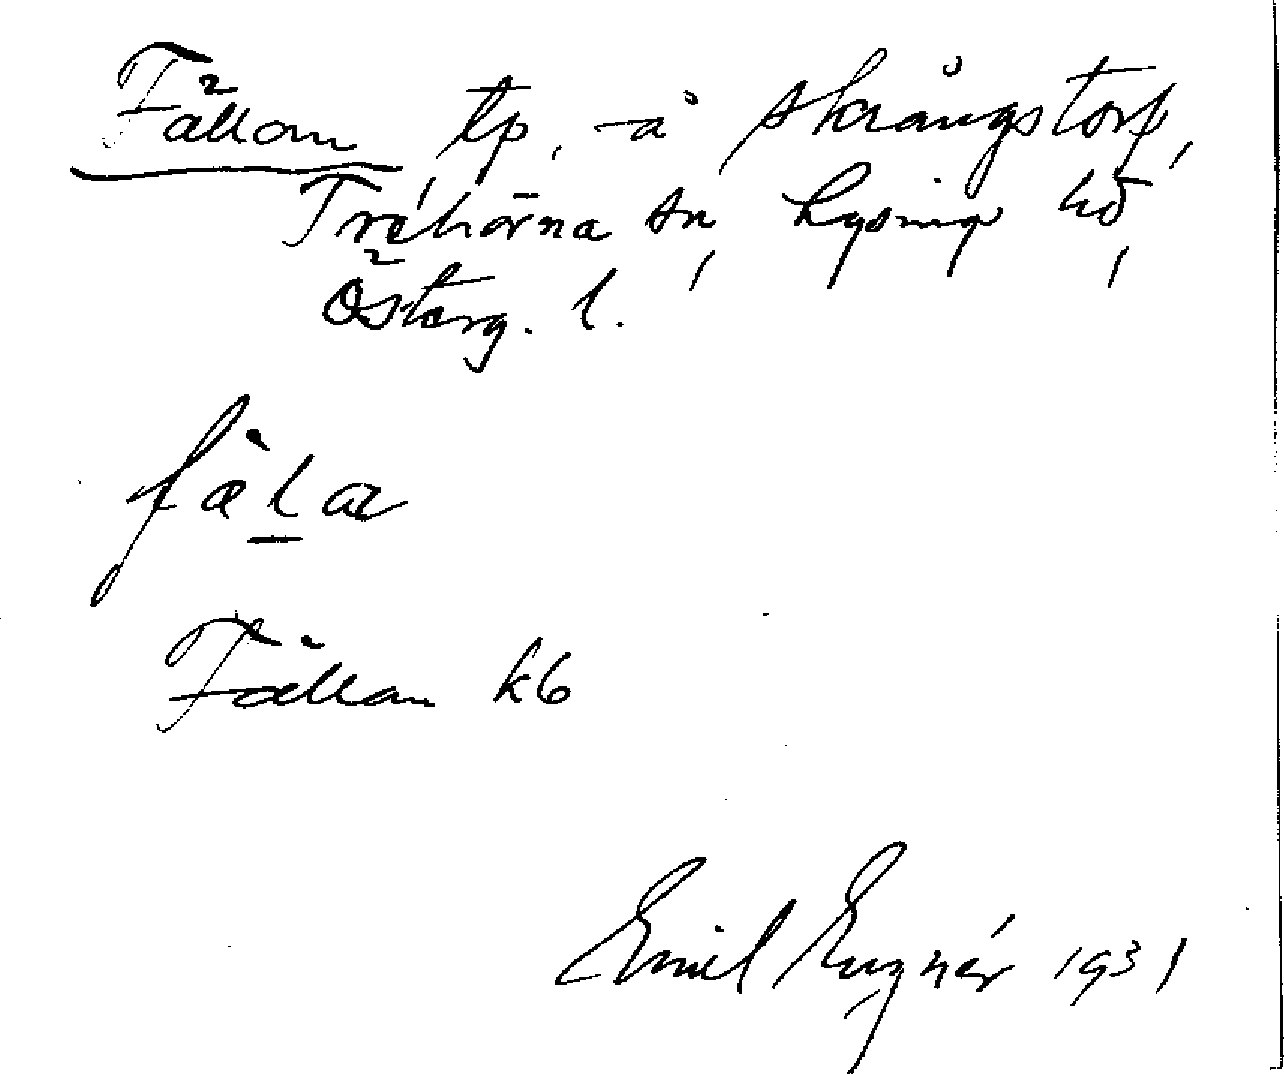 Fällan tp, å Skrångstorp,
Trehörna sn, Lysing hd,
Österg. l.
fälar
Fällan kb
Emil Eugnér 1931